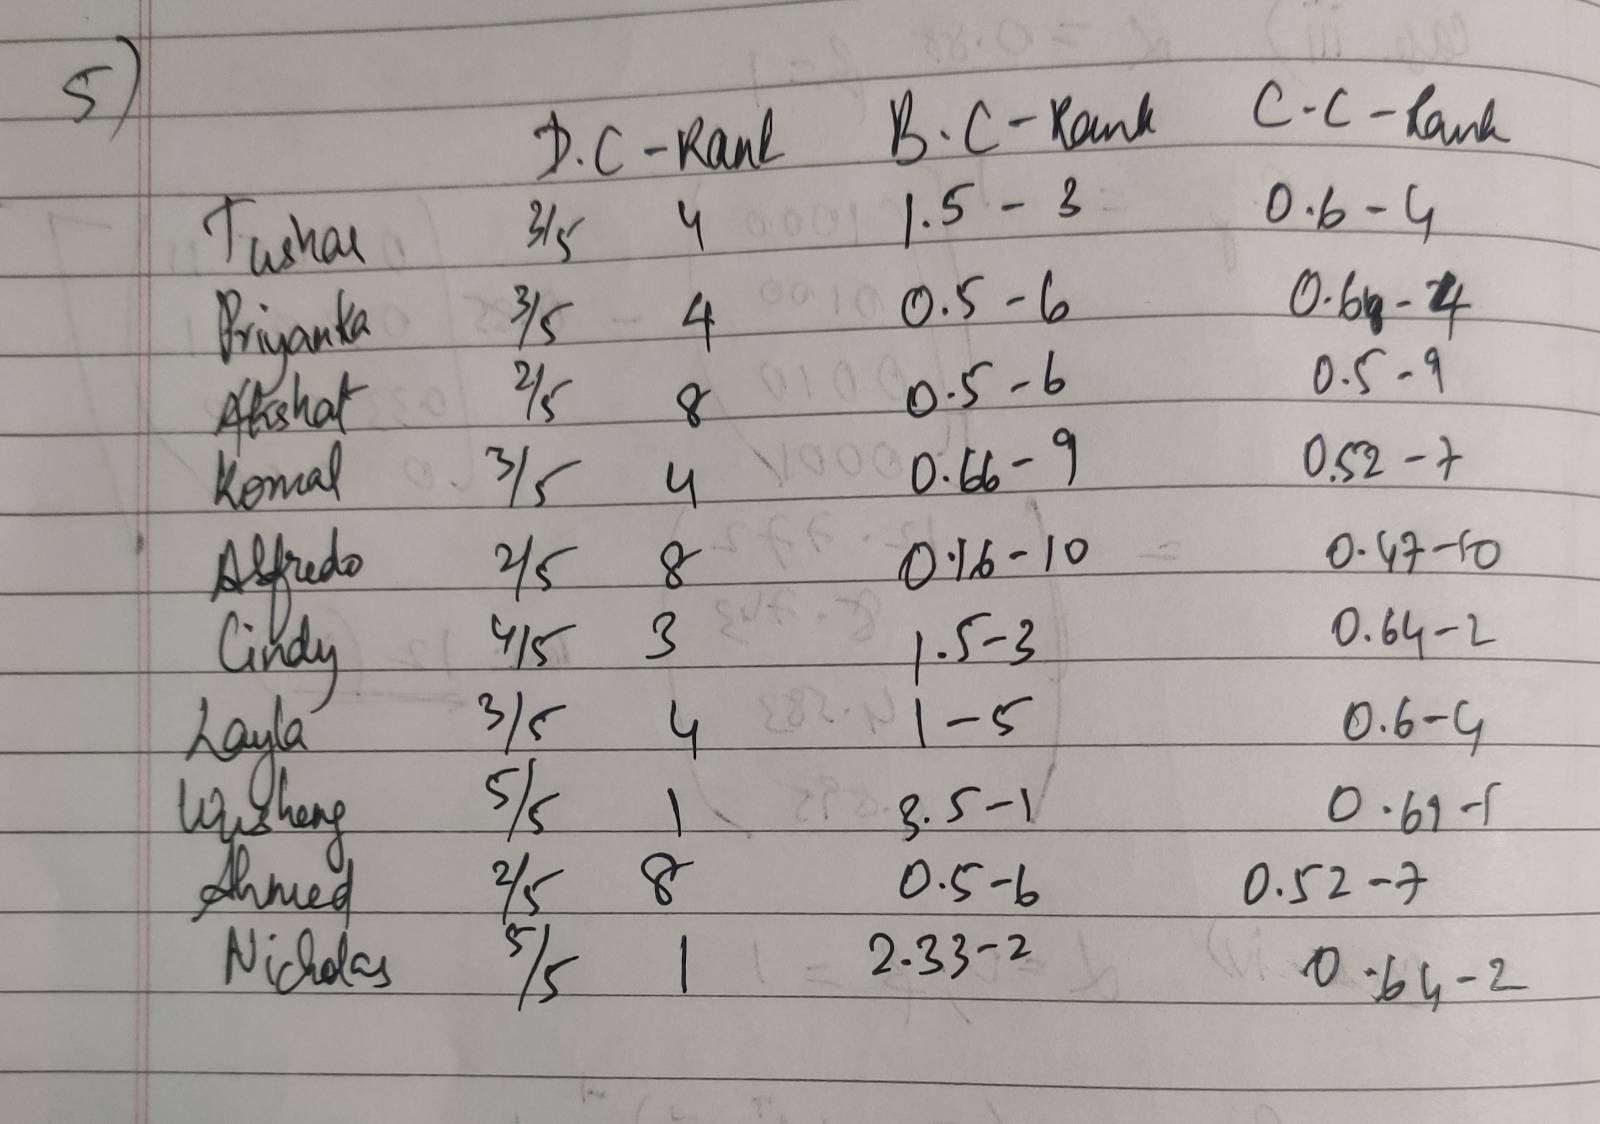 5)
D.C - Rank B.C - Rank C-C - Rank
Tushar 3/5 4 1.5 - 3 0.6 - 4
Priyanka 3/5 4 0.5 - 6 0.6 - 4
Akshat 2/5 8 0.5 - 6 0.5 - 9
Komal 3/5 4 0.66 - 9 0.52 - 7
Alfredo 2/5 8 0.16 - 10 0.47 - 10
Cindy 4/5 3 1.5 - 3 0.64 - 2
Layla 3/5 4 1 - 5 0.6 - 4
Wusheng 5/5 1 3.5 - 1 0.69 - 1
Ahmed 2/5 8 0.5 - 6 0.52 - 7
Nicholas 5/5 1 2.33 - 2 0.64 - 2